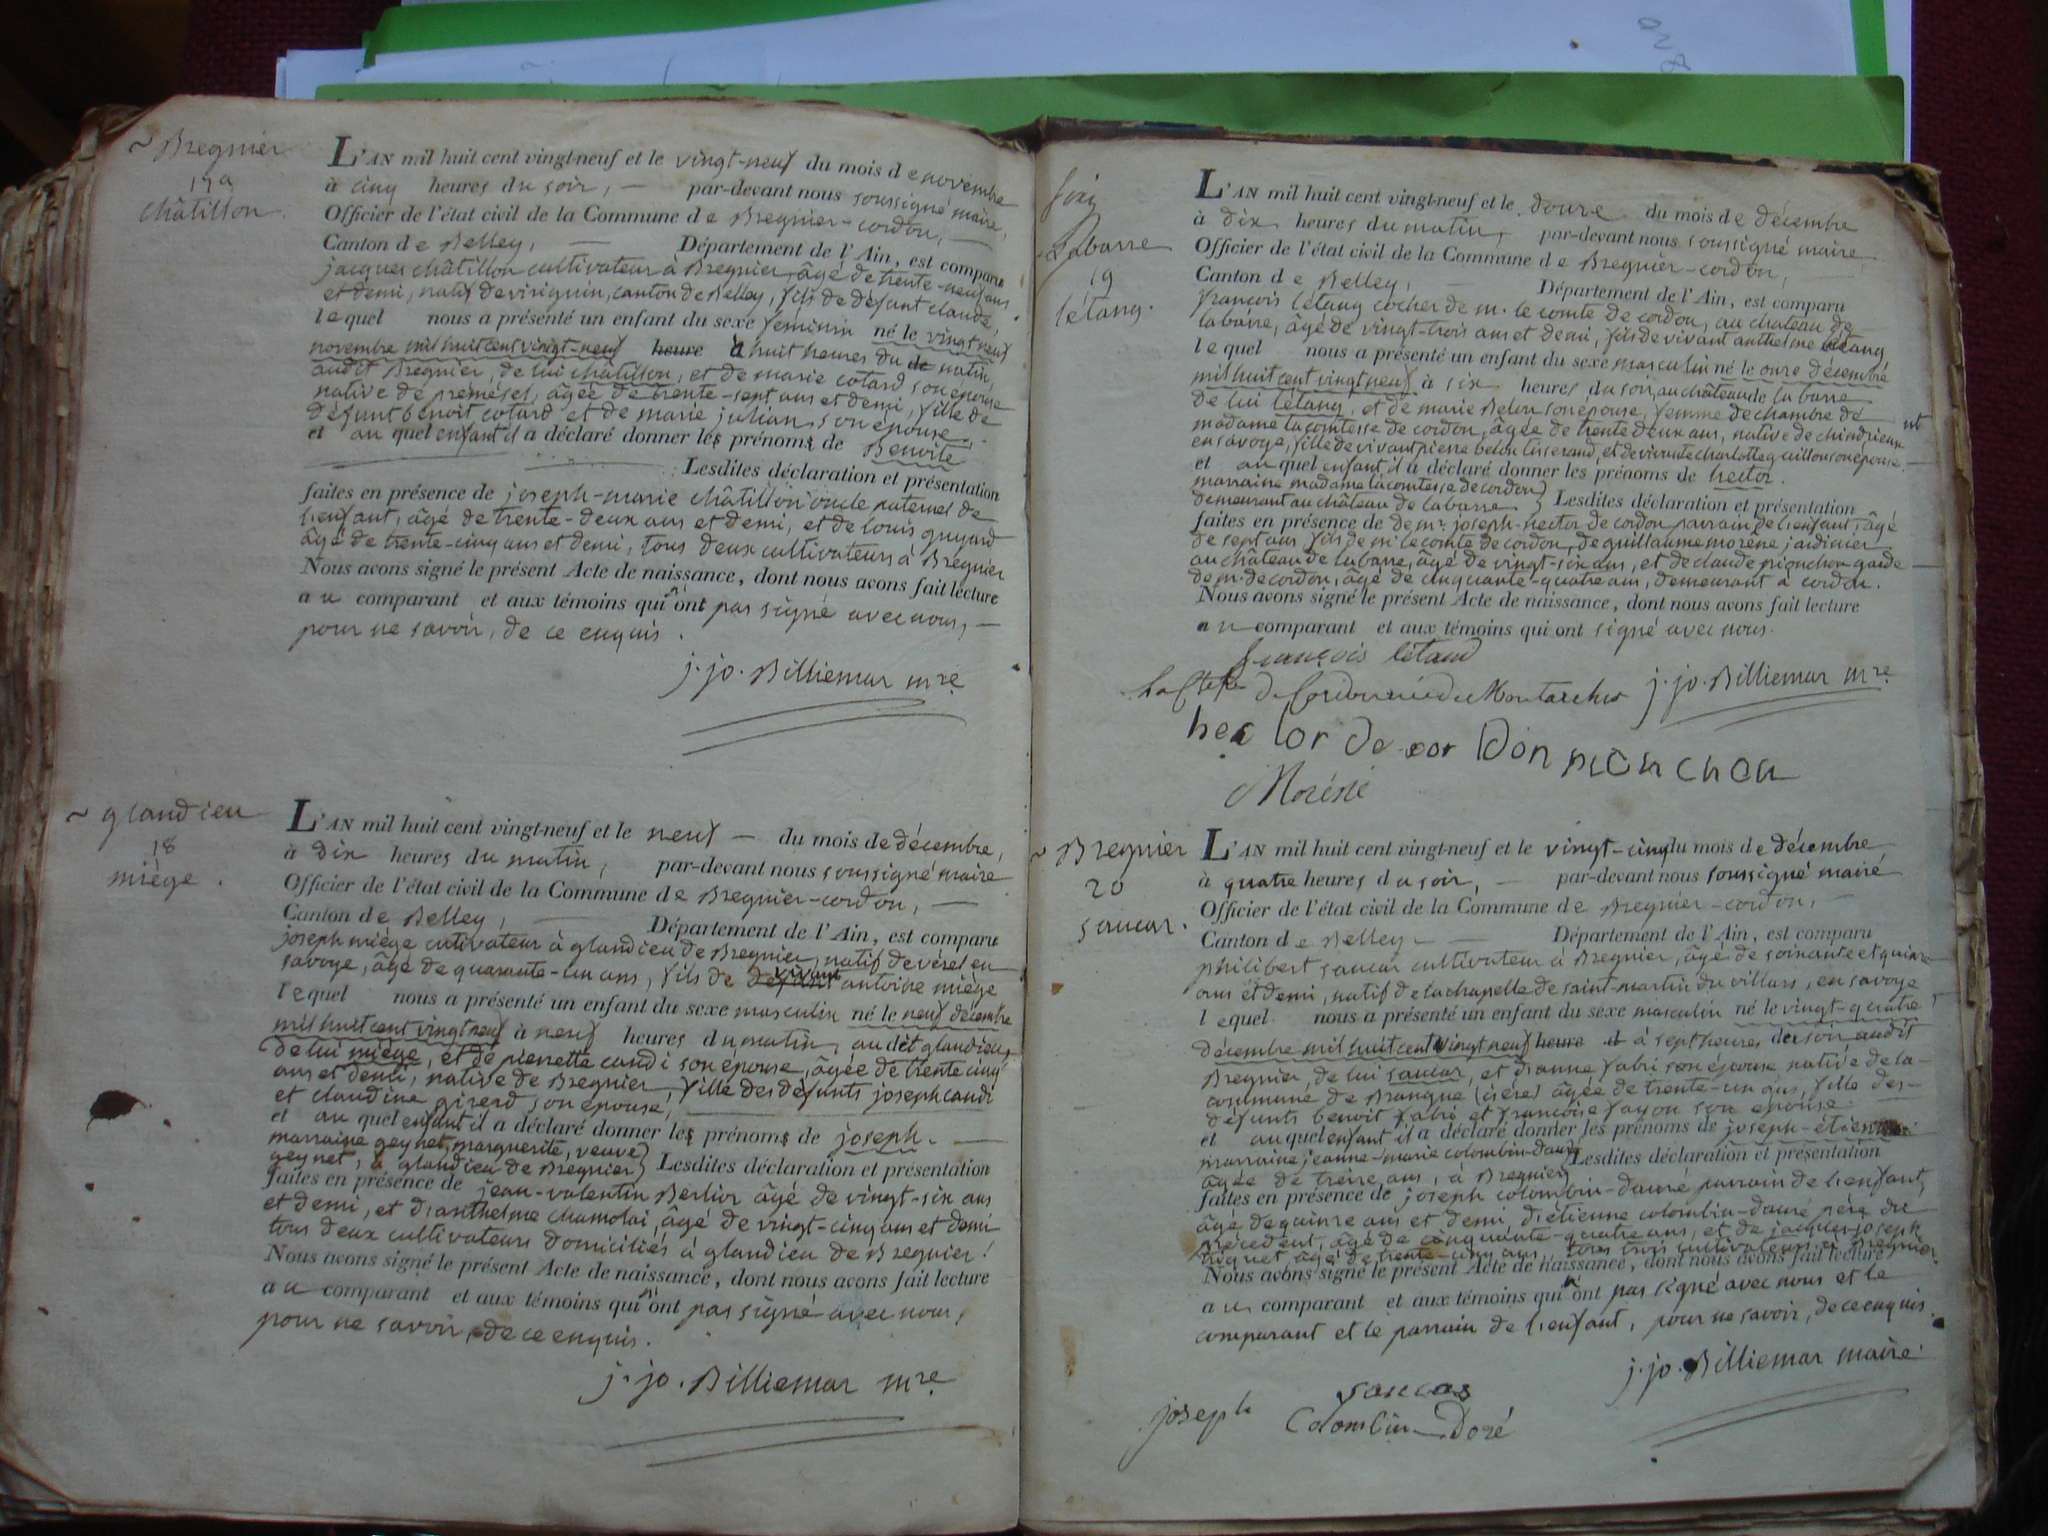 ~ Bregnier
17
châtillon.
L'AN mil huit cent vingt-neuf et le vingt-neuf du mois de novembre
à cinq heures du soir, — par-devant nous soussigné maire,
Officier de l'état civil de la Commune de Bregnier-cordon, —
Canton de Belley, — Département de l'Ain, est comparu
jacques châtillon cultivateur à Bregnier, âgé de trente-neuf ans
et demi, natif de virignin, canton de Belley, fils de défunt claude,
lequel nous a présenté un enfant du sexe féminin né le vingt neuf
novembre mil huit cent vingt-neuf heure à huit heures du matin,
audit Bregnier, de lui châtillon, et de marie cotard son épouse
native de premésel, âgée de trente-sept ans et demi, fille de
défunt benoit cotard et de marie julian son épouse,
et au quel enfant il a déclaré donner les prénoms de Benoite
Lesdites déclaration et présentation
faites en présence de joseph-marie châtillon oncle paternel de
l'enfant, âgé de trente-deux ans et demi, et de louis guyard
âgé de trente-cinq ans et demi, tous deux cultivateurs à Bregnier
Nous avons signé le présent Acte de naissance, dont nous avons fait lecture
au comparant et aux témoins qui n'ont pas signé avec nous, —
pour ne savoir, de ce enquis.
j. jo. Billiemar mre
~ glandieu
18
miège.
L'AN mil huit cent vingt-neuf et le neuf — du mois de décembre,
à dix heures du matin, par-devant nous soussigné maire
Officier de l'état civil de la Commune de Bregnier-cordon, —
Canton de Belley, — Département de l'Ain, est comparu
joseph miège cultivateur à glandieu de Bregnier, natif de vérel en
savoye, âgé de quarante-un ans, fils de défunt vivant antoine miège
lequel nous a présenté un enfant du sexe masculin né le neuf décembre
mil huit cent vingt neuf à neuf heures du matin, au dit glandieu,
de lui miège, et de pierrette candi son épouse, âgée de trente cinq
ans et demi, native de Bregnier, fille des défunts joseph candi
et claudine girerd son épouse,
et au quel enfant il a déclaré donner les prénoms de joseph. —
marraine geynet, marguerite, veuve
geynet, à glandieu de Bregnier } Lesdites déclaration et présentation
faites en présence de jean-valentin Berlior âgé de vingt-six ans
et demi, et d'anthelme chamolai, âgé de vingt-cinq ans et demi
tous deux cultivateurs domiciliés à glandieu de Bregnier.
Nous avons signé le présent Acte de naissance, dont nous avons fait lecture
au comparant et aux témoins qui n'ont pas signé avec nous,
pour ne savoir, de ce enquis.
j. jo. Billiemar mre
Labarre
19
létang.
L'AN mil huit cent vingt-neuf et le douze du mois de décembre
à dix heures du matin, par-devant nous soussigné maire,
Officier de l'état civil de la Commune de Bregnier-cordon,
Canton de Belley, — Département de l'Ain, est comparu
françois létang cocher de m. le comte de cordon, au chateau de
labarre, âgé de vingt-trois ans et demi, fils de vivant anthelme létang,
lequel nous a présenté un enfant du sexe masculin né le onze décembre
mil huit cent vingt neuf à six heures du soir, au château de la barre
de lui létang, et de marie Belon son épouse, femme de chambre de
madame la comtesse de cordon, âgée de trente deux ans, native de chindrieux
en savoye, fille de vivant pierre belon tisserand, et de vivante charlotte guillon son épouse,
et au quel enfant il a déclaré donner les prénoms de hector.
marraine madame la comtesse de cordon
demeurant au château de labarre } Lesdites déclaration et présentation
faites en présence de de mr. joseph-hector de cordon parrain de l'enfant, âgé
de sept ans fils de mr. le comte de cordon, de guillaume morêne jardinier
au château de labarre, âgé de vingt-six ans, et de claude pionchon garde
de m. de cordon, âgé de cinquante-quatre ans, demeurant à cordon.
Nous avons signé le présent Acte de naissance, dont nous avons fait lecture
au comparant et aux témoins qui ont signé avec nous.
françois létand
La Ctesse de Cordon née de Montarcher j. jo. Billiemar mre
hector de cordon pionchon
Moréne
~ Bregnier
20
saucar.
L'AN mil huit cent vingt-neuf et le vingt-cinq du mois de décembre
à quatre heures du soir, — par-devant nous soussigné maire
Officier de l'état civil de la Commune de Bregnier-cordon, —
Canton de Belley — Département de l'Ain, est comparu
philibert saucar cultivateur à Bregnier, âgé de soixante et quinze
ans et demi, natif de la chapelle de saint-martin du villars, en savoye
lequel nous a présenté un enfant du sexe masculin né le vingt-quatre
décembre mil huit cent vingt neuf heure à sept heures du soir audit
Bregnier, de lui saucar, et d'anne fabri son épouse native de la
commune de Brangue (isère) âgée de trente-un ans, fille des
défunts benoit fabri et françoise fayon son épouse.
et au quel enfant il a déclaré donner les prénoms de joseph-étienne
marraine jeanne-marie colombin-dauré
âgée de treize ans, à Bregnier } Lesdites déclaration et présentation
faites en présence de joseph colombin-dauré parrain de l'enfant,
âgé de quinze ans et demi, d'étienne colombin-dauré père du
précédent, âgé de cinquante-quatre ans, et de jacques-joseph
âgé de trente-cinq ans, tous trois cultivateurs à Bregnier
Nous avons signé le présent Acte de naissance, dont nous avons fait lecture
au comparant et aux témoins qui n'ont pas signé avec nous et le
comparant et le parrain de l'enfant, pour ne savoir, de ce enquis.
j. jo. Billiemar maire
saucar
joseph Colombin Doré